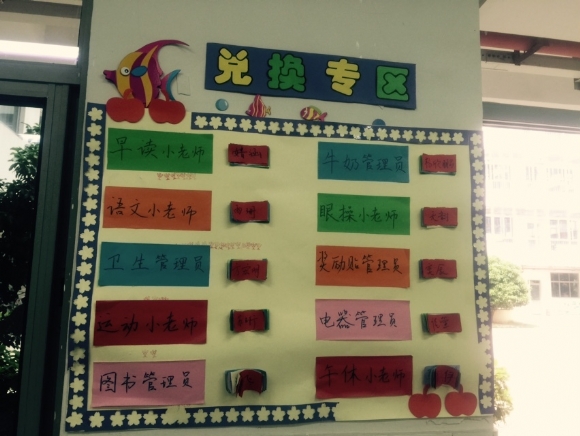 兑换专区
早读小老师
牛奶管理员
语文小老师
眼操小老师
卫生管理员
奖励贴管理员
运动小老师
电器管理员
图书管理员
午休小老师